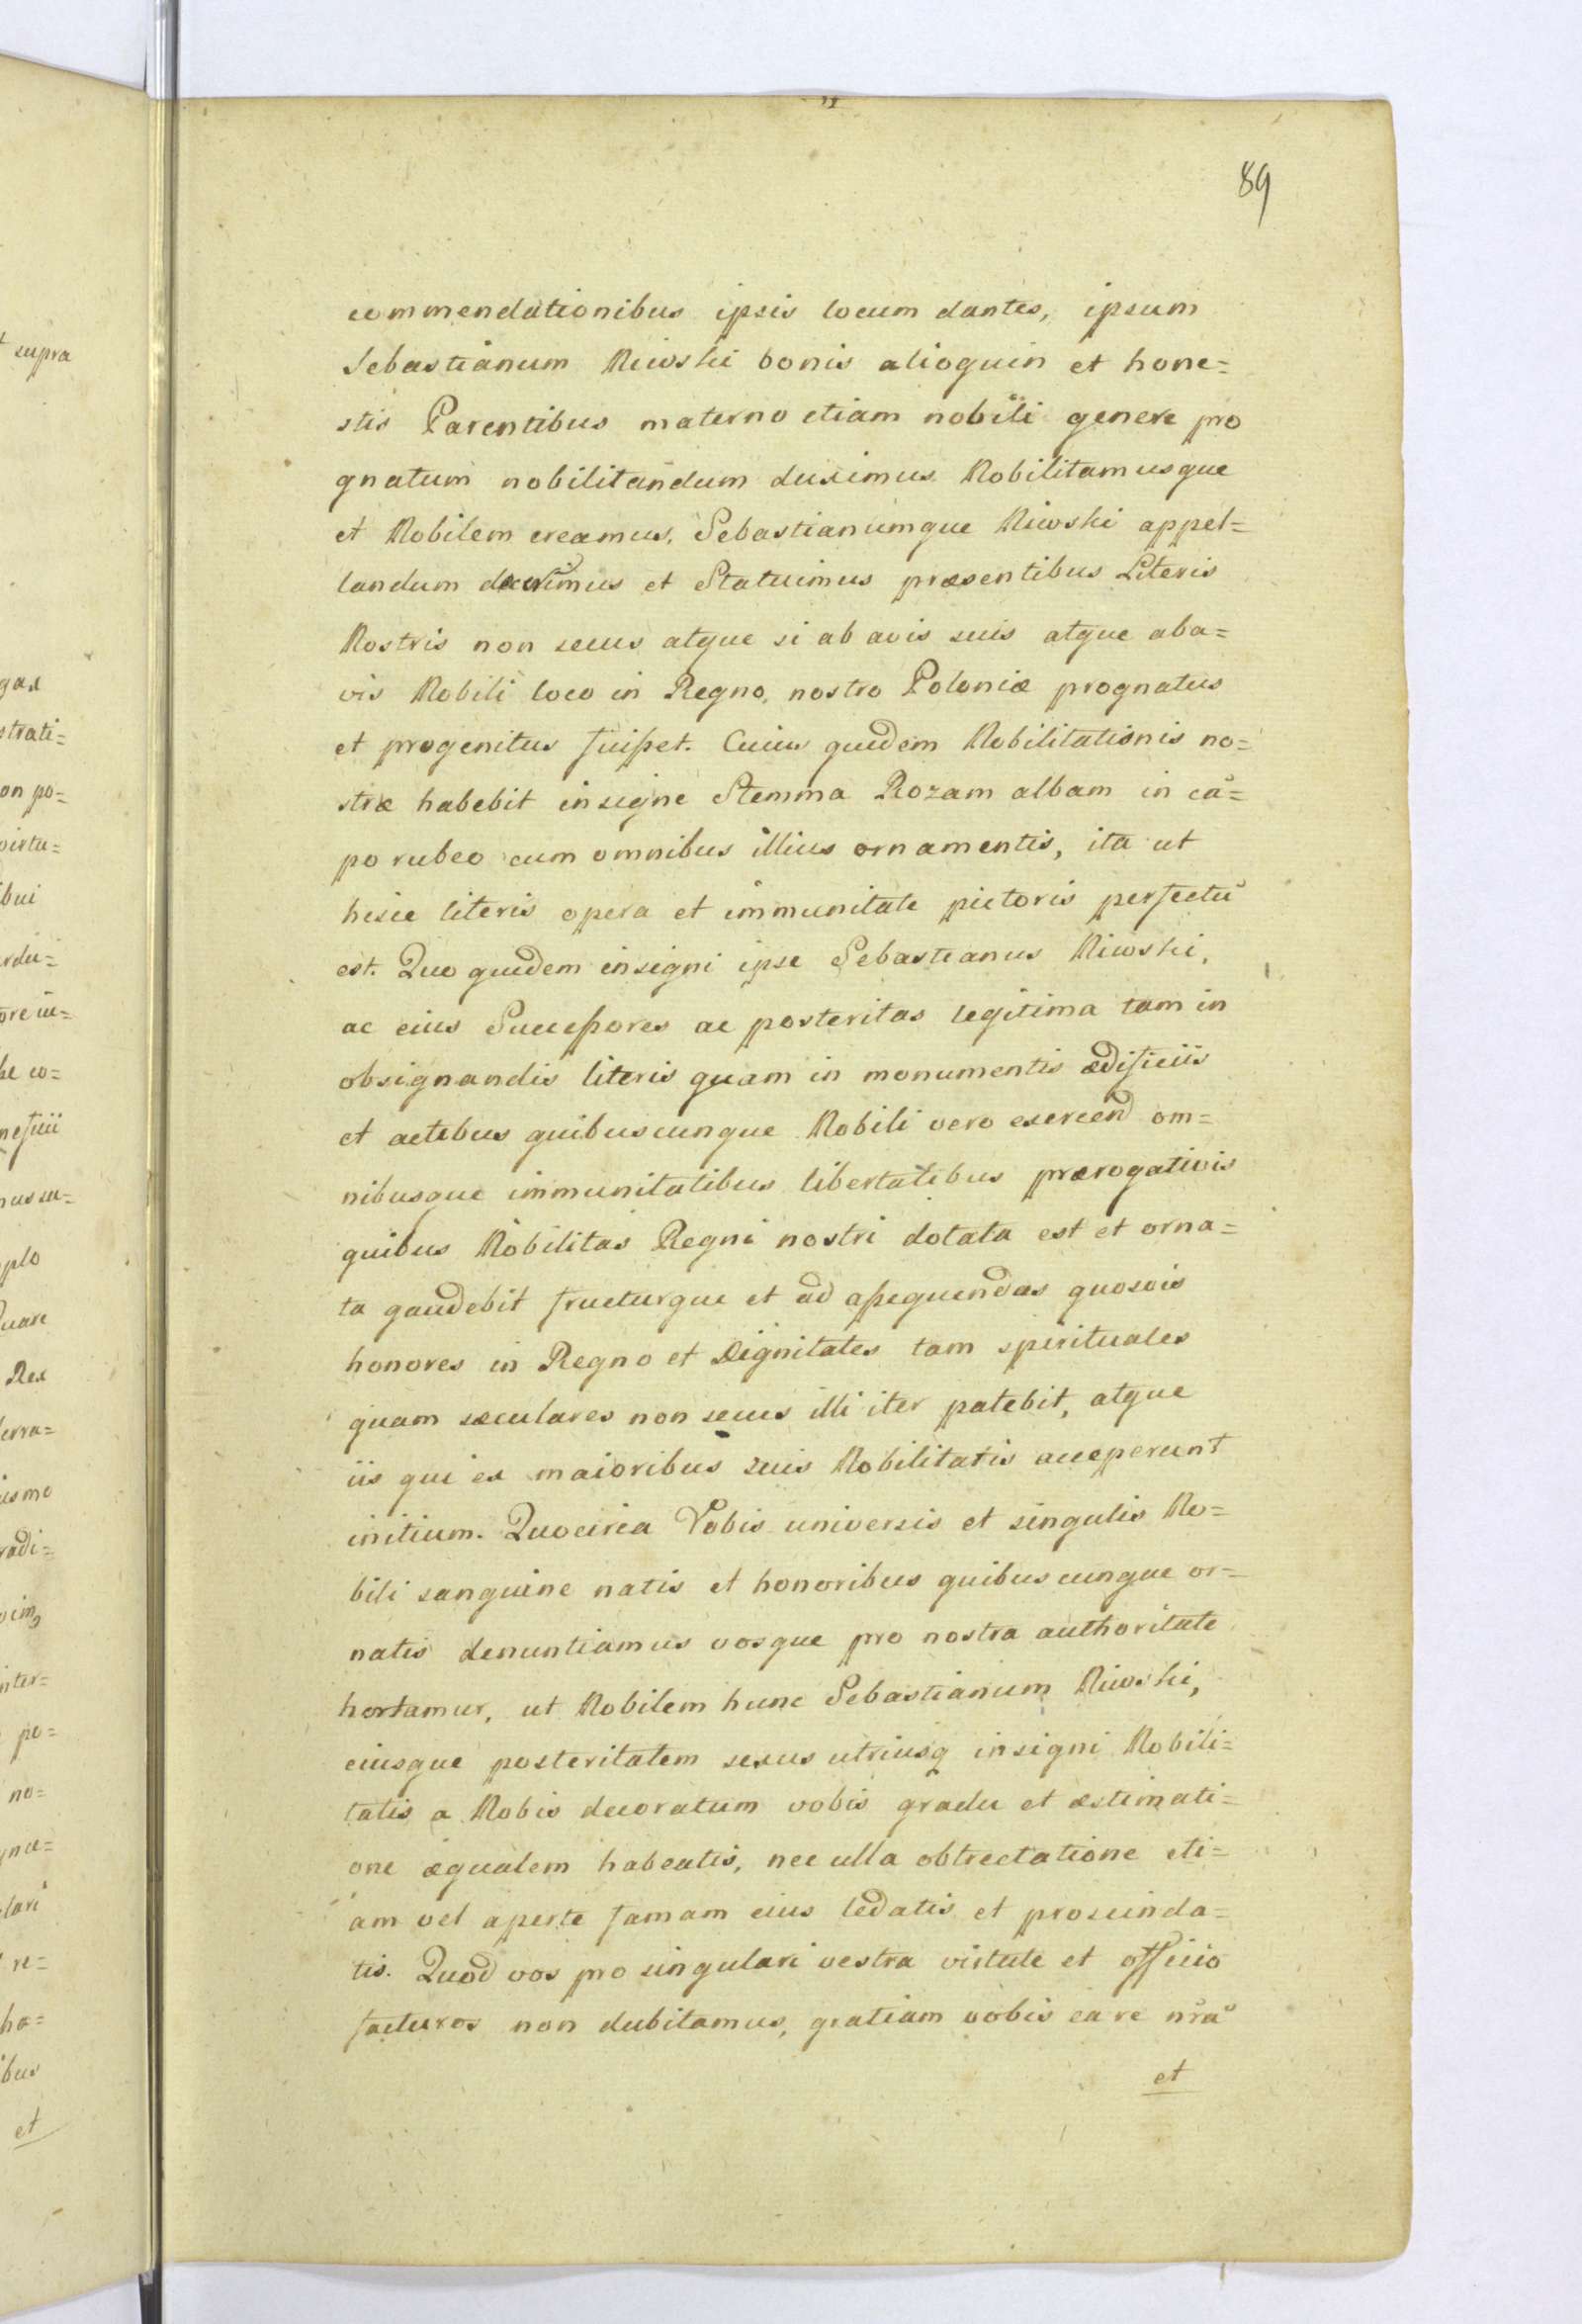 89
commendationibus ipsis locum dantes, ipsum
Sebastianum Niwski bonis alioquin et hone=
stis Parentibus materno etiam nobili genere pro
gnatum nobilitandum duximus Nobilitamusque
et Nobilem creamus, Sebastianumque Niwski appel=
landum decrevimus et Statuimus præsentibus Literis
Nostris non secus atque si ab avis suis atque aba=
vis Nobili loco in Regno, nostro Poloniæ prognatus
et progenitus fuisset. Cuius quidem Nobilitationis no=
stræ habebit insigne Stemma Rozam albam in cā=
po rubeo cum omnibus illius ornamentis, ita ut
hisce literis opera et immunitate pictoris perfectū
est. Quo quidem insigni ipse Sebastianus Niwski,
ac eius Successores ac posteritas legitima tam in
obsignandis literis quam in monumentis ædificiis
et actibus quibuscunque Nobili vero exercend om=
nibusque immunitatibus libertatibus prærogativis
quibus Nobilitas Regni nostri dotata est et orna=
ta gaudebit frueturque et ad assequendas quosvis
honores in Regno et Dignitates tam spirituales
quam sæculares non secus illi iter patebit, atque
iis qui ex maioribus suis Nobilitatis acceperunt
initium. Quocirca Vobis universis et singulis No=
bili sanguine natis et honoribus quibuscunque or=
natis denuntiamus vosque pro nostra authoritate
hortamur, ut Nobilem hunc Sebastianum Niwski,
eiusque posteritatem sexus utriusq insigni Nobili=
tatis a Nobis decoratum vobis gradu et æstimati=
one æqualem habeatis, nec ulla obtrectatione eti=
am vel aperte famam eius ledatis et proscinda=
tis. Quod vos pro singulari vestra virtute et officio
facturos non dubitamus, gratiam vobis ea re nrā
et